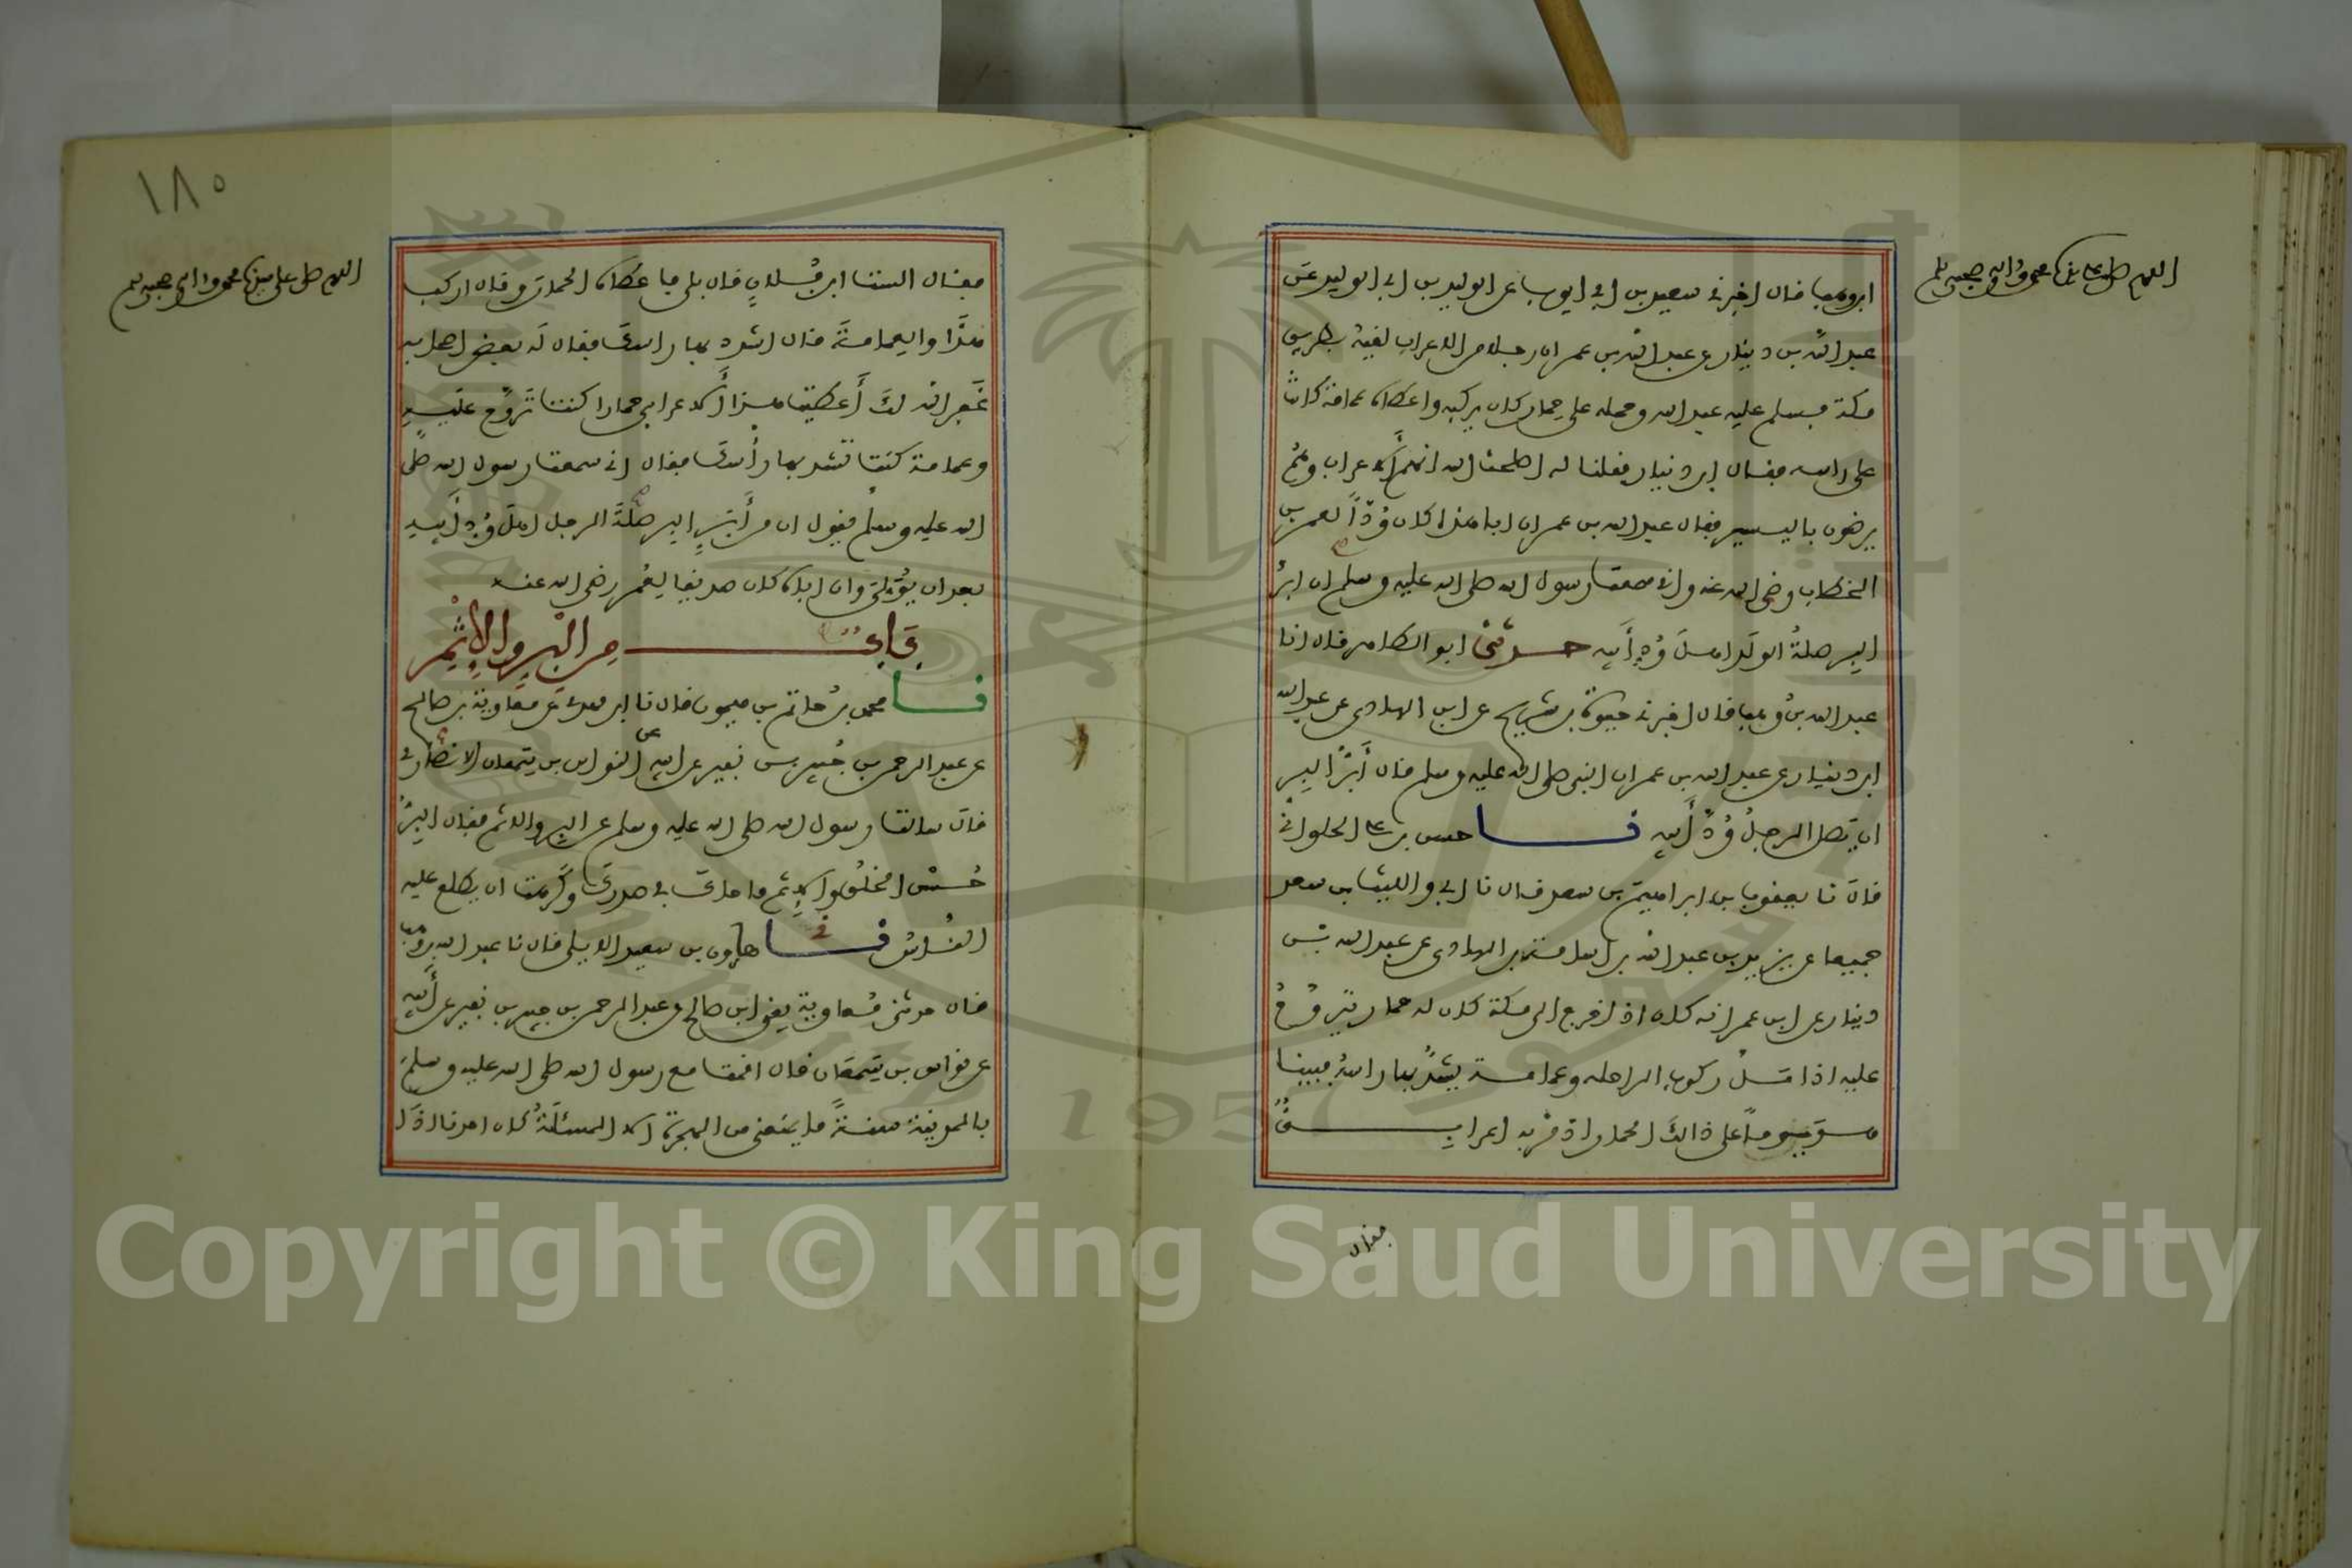 اللهم صل على سيدنا محمد وءاله وصحبه وسلم
ابن وهب قال اخبرني سعيد بن ابي ايوب عن الوليد بن ابي الوليد عن
عبد الله بن دينار عن عبد الله بن عمر ان رجلا من الاعراب لقيه بطريق
مكة فسلم عليه عبد الله وحمله على حمار كان يركبه واعطاه عمامة كانت
على راسه فقال ابن دينار فقلنا له اصلحك الله انهم الاعراب وهم
يرضون باليسير فقال عبد الله بن عمر ان ابا هذا كان ودا لعمر بن
الخطاب رضي الله عنه واني سمعت رسول الله صلى الله عليه وسلم ان ابر
البر صلة الولد اهل ود أبيه حدثني ابو الطاهر قال انا
عبد الله بن وهب قال اخبرني حيوة بن شريح عن ابن الهادي عن عبد الله
ابن دينار عن عبد الله بن عمر ان النبي صلى الله عليه وسلم قال أبر البر
ان يصل الرجل ود أبيه نا حسن بن علي الحلواني
قال نا يعقوب بن ابراهيم بن سعد قال نا ابي والليث بن سعد
جميعا عن يزيد بن عبد الله بن اسامة بن الهادي عن عبد الله بن
دينار عن ابن عمر انه كان اذا خرج الى مكة كان له حمار يتروح
عليه اذا مل ركوب الراحلة وعمامة يشد بها راسه فبينا
هو يوما على ذالك الحمار اذ مر به اعرابي
فقال
١٨٠
اللهم صل على سيدنا محمد وءاله وصحبه وسلم
فقال الست ابن فلان قال بلى فاعطاه الحمار وقال اركب
هذا والعمامة قال اشدد بها راسك فقال له بعض اصحابه
غفر الله لك أعطيت هذا الأعرابي حمارا كنت تروح عليه
وعمامة كنت تشد بها رأسك فقال اني سمعت رسول الله صلى
الله عليه وسلم يقول ان من أبر البر صلة الرجل اهل ود أبيه
بعد ان يولي وان اباه كان صديقا لعمر رضي الله عنه
باب من البر والإثم
نا محمد بن حاتم بن ميمون قال نا ابن مهدي عن معاوية بن صالح
عن عبد الرحمن بن جبير بن نفير عن ابيه عن النواس بن سمعان الانصاري
قال سالت رسول الله صلى الله عليه وسلم عن البر والاثم فقال البر
حسن الخلق والإثم ما حاك في صدرك وكرهت ان يطلع عليه
الناس ني هارون بن سعيد الايلي قال نا عبد الله بن وهب
قال حدثني معاوية يعني ابن صالح عن عبد الرحمن بن جبير بن نفير عن أبيه
عن نواس بن سمعان قال اقمت مع رسول الله صلى الله عليه وسلم
بالمدينة سنة ما يمنعني من الهجرة الا المسئلة كان احدنا اذا
Copyright © King Saud University
1957